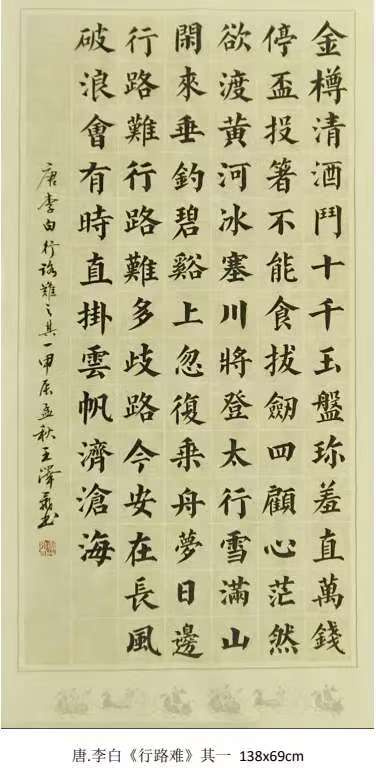 金樽清酒鬥十千玉盤珎羞直萬錢
停盃投箸不能食拔劒四顧心茫然
欲渡黃河冰塞川將登太行雪滿山
閑來垂釣碧谿上忽復乘舟夢日邊
行路難行路難多歧路今安在長風
破浪會有時直掛雲帆濟滄海
唐李白行路難之其一甲辰孟秋王澤書
唐.李白《行路难》其一 138x69cm